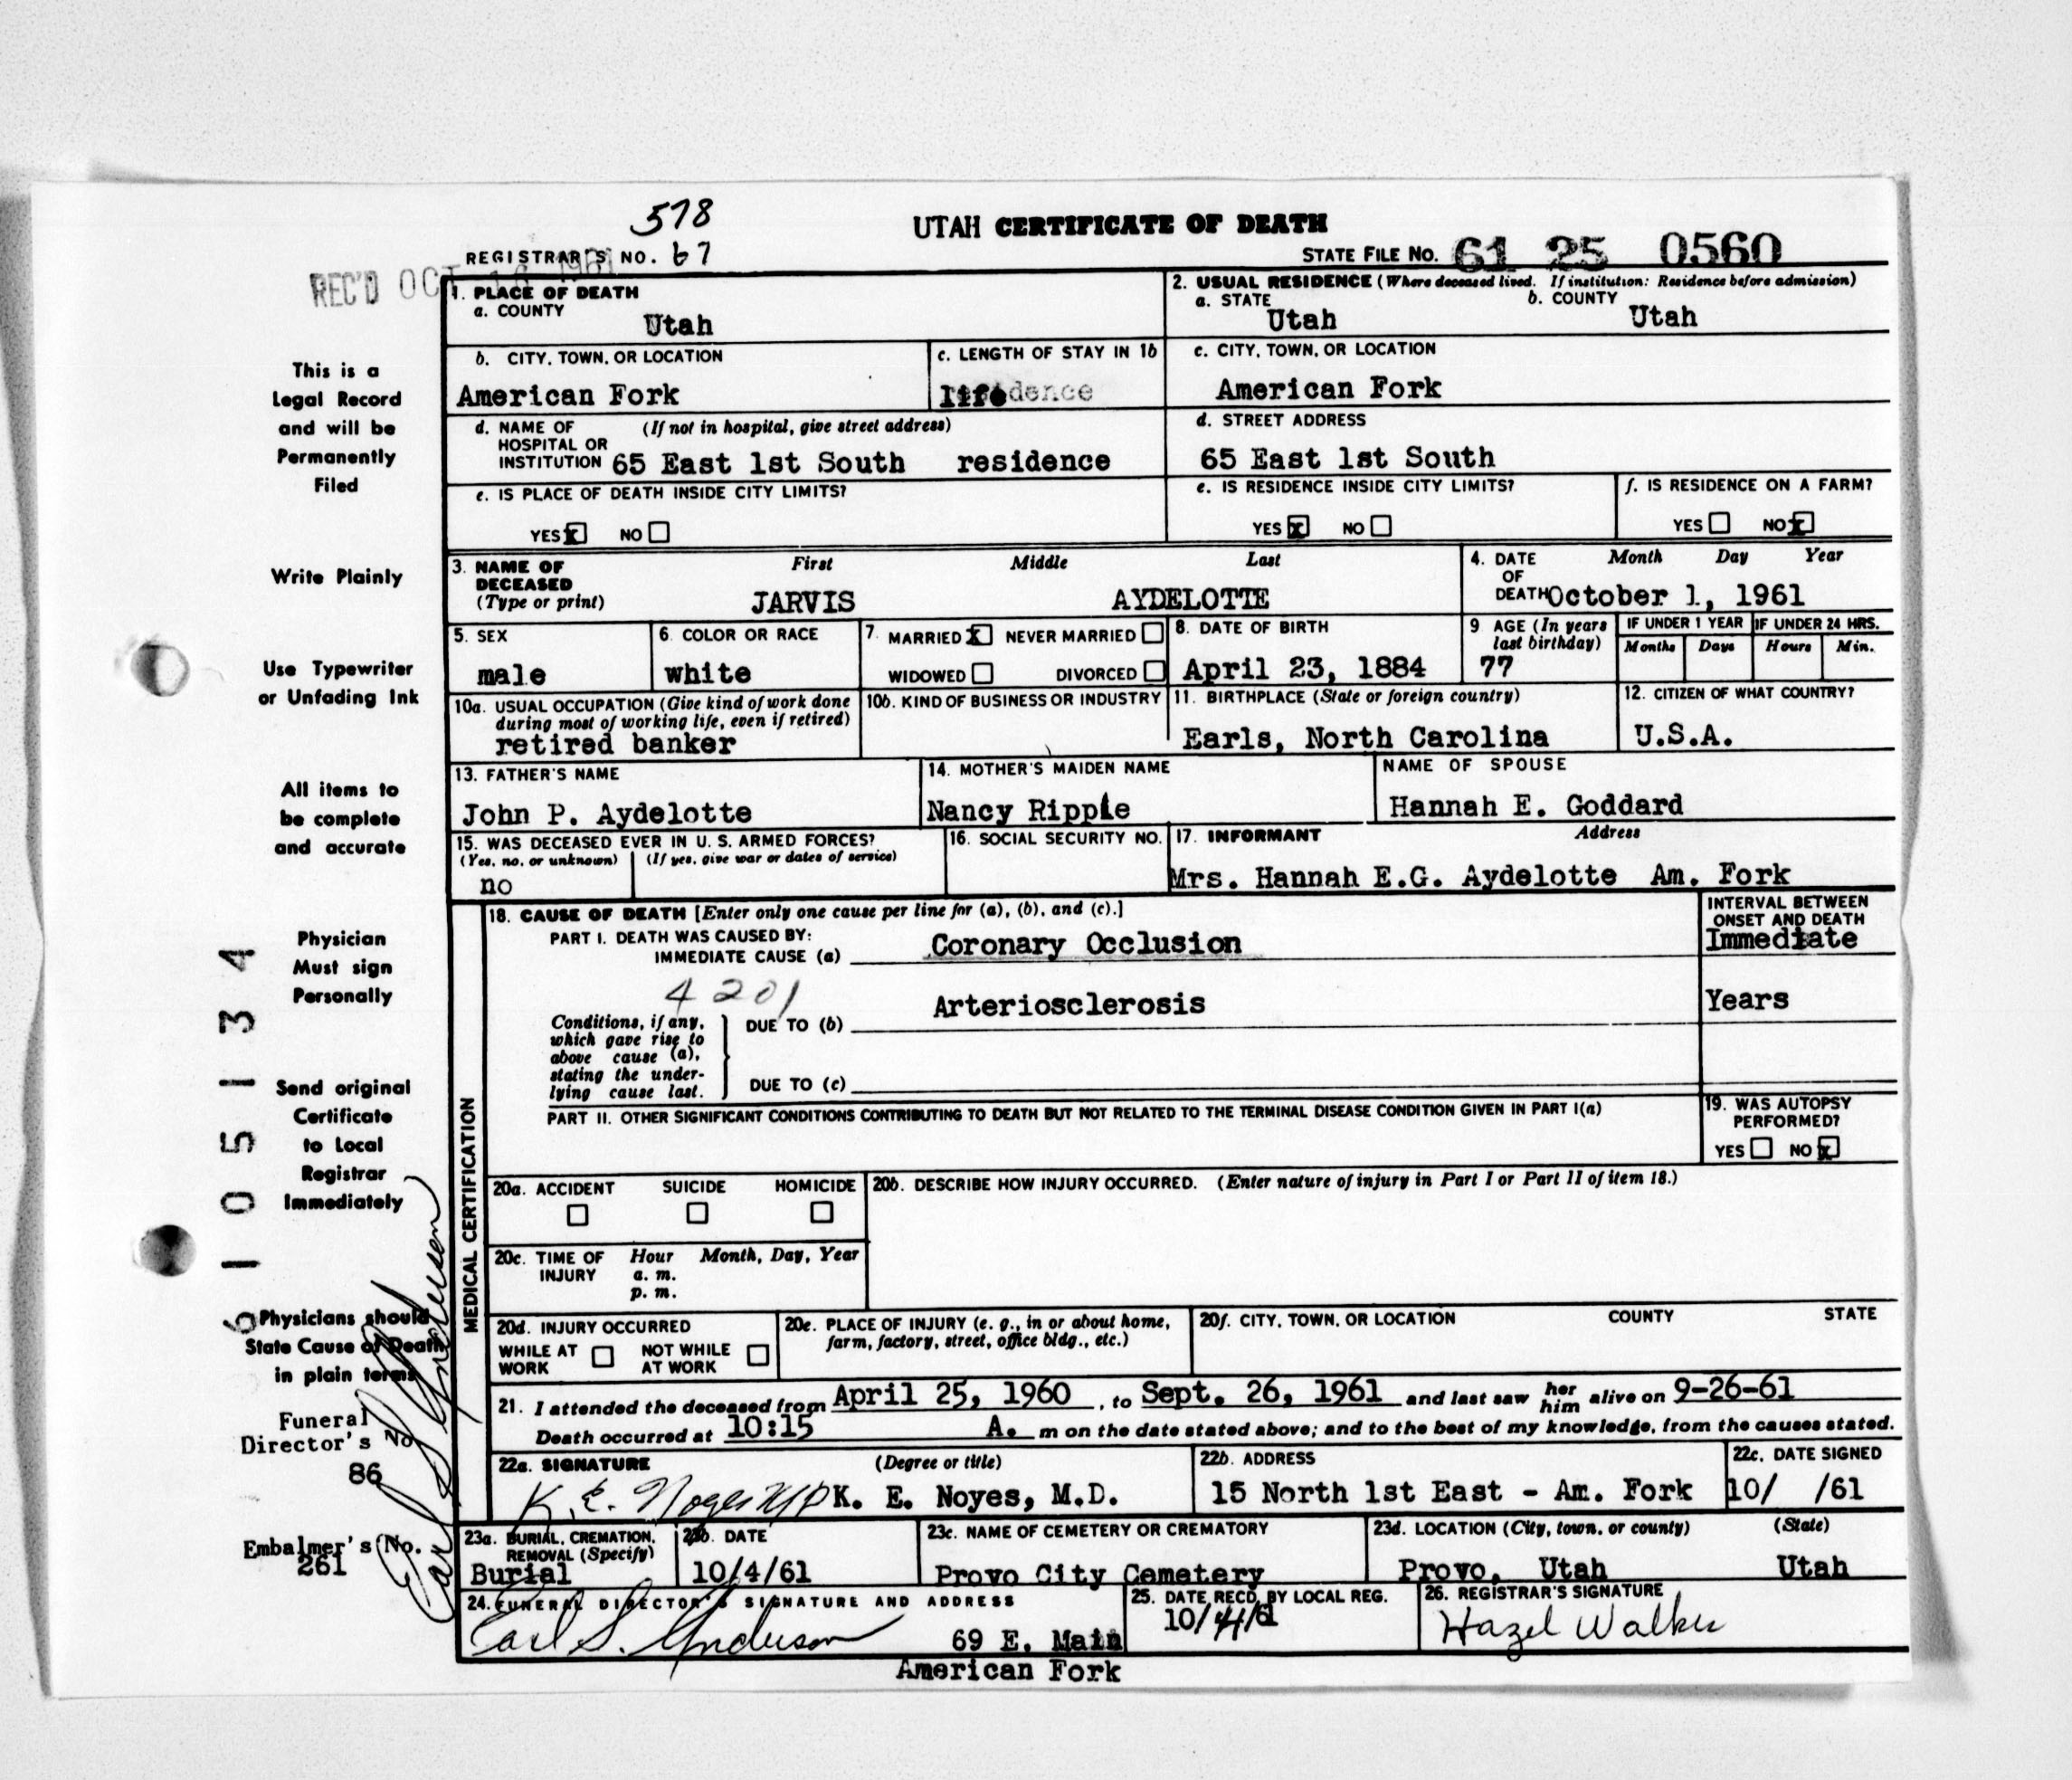 578
UTAH CERTIFICATE OF DEATH
REGISTRAR'S NO. 67
STATE FILE NO. 61 25 0560
REC'D OCT 16 1961
1. PLACE OF DEATH
a. COUNTY
Utah
2. USUAL RESIDENCE (Where deceased lived. If institution: Residence before admission)
a. STATE
Utah
b. COUNTY
Utah
b. CITY, TOWN, OR LOCATION
American Fork
c. LENGTH OF STAY IN 1b
life
c. CITY, TOWN, OR LOCATION
American Fork
d. NAME OF (If not in hospital, give street address)
HOSPITAL OR
INSTITUTION 65 East 1st South residence
d. STREET ADDRESS
65 East 1st South
e. IS PLACE OF DEATH INSIDE CITY LIMITS?
YES x NO
e. IS RESIDENCE INSIDE CITY LIMITS?
YES x NO
f. IS RESIDENCE ON A FARM?
YES NO x
3. NAME OF
DECEASED
(Type or print)
First Middle Last
JARVIS AYDELOTTE
4. DATE Month Day Year
OF
DEATH October 1, 1961
5. SEX
male
6. COLOR OR RACE
white
7. MARRIED x NEVER MARRIED
WIDOWED DIVORCED
8. DATE OF BIRTH
April 23, 1884
9 AGE (In years
last birthday)
77
IF UNDER 1 YEAR IF UNDER 24 HRS.
Months Days Hours Min.
10a. USUAL OCCUPATION (Give kind of work done
during most of working life, even if retired)
retired banker
10b. KIND OF BUSINESS OR INDUSTRY
11. BIRTHPLACE (State or foreign country)
Earls, North Carolina
12. CITIZEN OF WHAT COUNTRY?
U.S.A.
13. FATHER'S NAME
John P. Aydelotte
14. MOTHER'S MAIDEN NAME
Nancy Ripple
NAME OF SPOUSE
Hannah E. Goddard
15. WAS DECEASED EVER IN U. S. ARMED FORCES?
(Yes, no, or unknown) (If yes, give war or dates of service)
no
16. SOCIAL SECURITY NO.
17. INFORMANT Address
Mrs. Hannah E.G. Aydelotte Am. Fork
MEDICAL CERTIFICATION
18. CAUSE OF DEATH [Enter only one cause per line for (a), (b), and (c).]
PART I. DEATH WAS CAUSED BY:
IMMEDIATE CAUSE (a) Coronary Occlusion
INTERVAL BETWEEN
ONSET AND DEATH
Immediate
4201
Conditions, if any,
which gave rise to
above cause (a),
stating the under-
lying cause last.
DUE TO (b) Arteriosclerosis
Years
DUE TO (c)
PART II. OTHER SIGNIFICANT CONDITIONS CONTRIBUTING TO DEATH BUT NOT RELATED TO THE TERMINAL DISEASE CONDITION GIVEN IN PART I(a)
19. WAS AUTOPSY
PERFORMED?
YES NO x
20a. ACCIDENT SUICIDE HOMICIDE
20b. DESCRIBE HOW INJURY OCCURRED. (Enter nature of injury in Part I or Part II of item 18.)
20c. TIME OF Hour Month, Day, Year
INJURY a. m.
p. m.
20d. INJURY OCCURRED
WHILE AT NOT WHILE
WORK AT WORK
20e. PLACE OF INJURY (e. g., in or about home,
farm, factory, street, office bldg., etc.)
20f. CITY, TOWN, OR LOCATION COUNTY STATE
21. I attended the deceased from April 25, 1960, to Sept. 26, 1961 and last saw her him alive on 9-26-61
Death occurred at 10:15 A. m on the date stated above; and to the best of my knowledge, from the causes stated.
22a. SIGNATURE (Degree or title)
K. E. Noyes MD K. E. Noyes, M.D.
22b. ADDRESS
15 North 1st East - Am. Fork
22c. DATE SIGNED
10/ /61
23a. BURIAL, CREMATION,
REMOVAL (Specify)
Burial
23b. DATE
10/4/61
23c. NAME OF CEMETERY OR CREMATORY
Provo City Cemetery
23d. LOCATION (City, town, or county) (State)
Provo, Utah Utah
24. FUNERAL DIRECTOR'S SIGNATURE AND ADDRESS
Earl S. Anderson 69 E. Main
American Fork
25. DATE RECD. BY LOCAL REG.
10/4/61
26. REGISTRAR'S SIGNATURE
Hazel Walker
This is a
Legal Record
and will be
Permanently
Filed
Write Plainly
Use Typewriter
or Unfading Ink
All items to
be complete
and accurate
Physician
Must sign
Personally
Send original
Certificate
to Local
Registrar
Immediately
Physicians should
State Cause of Death
in plain terms
Funeral
Director's No
86
Embalmer's No.
261
Earl S Anderson
6105134